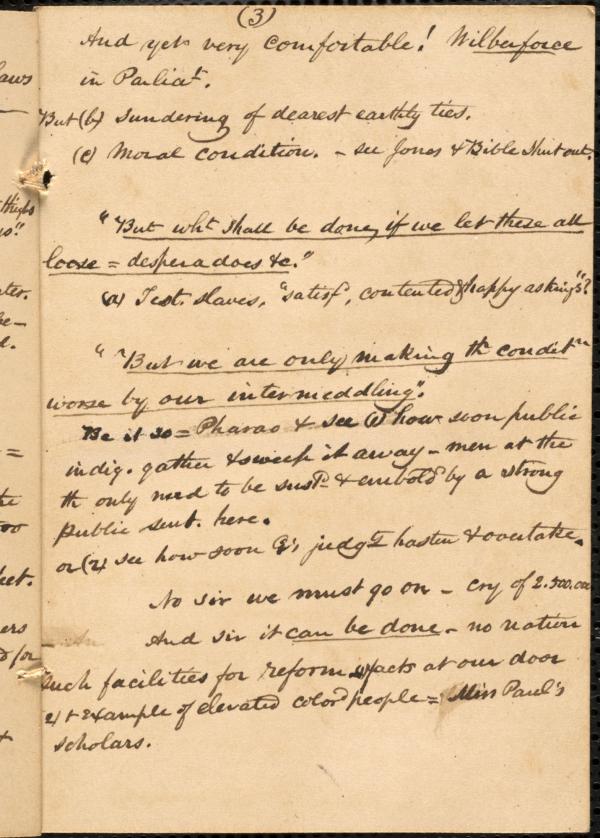 (3)
And yet very comfortable! Wilberforce
in Parliat.
But (b) Sundering of dearest earthly ties.
(c) Moral condition. - see Jones & Bible Shut out.
"But wht shall be done, if we let these all
loose = desperadoes &c."
(a) Test. slaves, "satisf, contented & happy as kings"?
"But we are only making th condit
worse by our intermeddling".
Be it so = Pharao & see (1) how soon public
indig. gather & sweep it away - men at the
th only need to be sustd & embold by a strong
public sent. here.
or (2) see how soon G's judgts hasten & overtake.
No sir we must go on - cry of 2.500.000
And sir it can be done - no nation
such facilities for reform facts at our door
(2) + Example of elevated colord people = Miss Paul's
scholars.